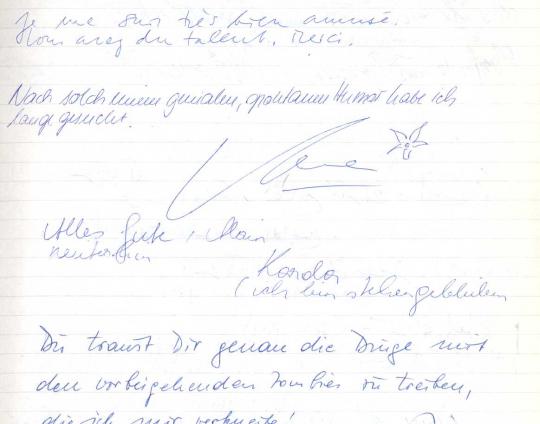 Je me suis très bien amusé.
Vous avez du talent. Merci.
Nach solch einem genialen, spontanen Humor habe ich
lange gesucht.
Alles Gute, Alain
weiterhin
Kordo
(ich bin stehengeblieben
Du traust Dir genau die Dinge mit
den vorbeigehenden Zombies zu treiben,
die ich mir verkneife!